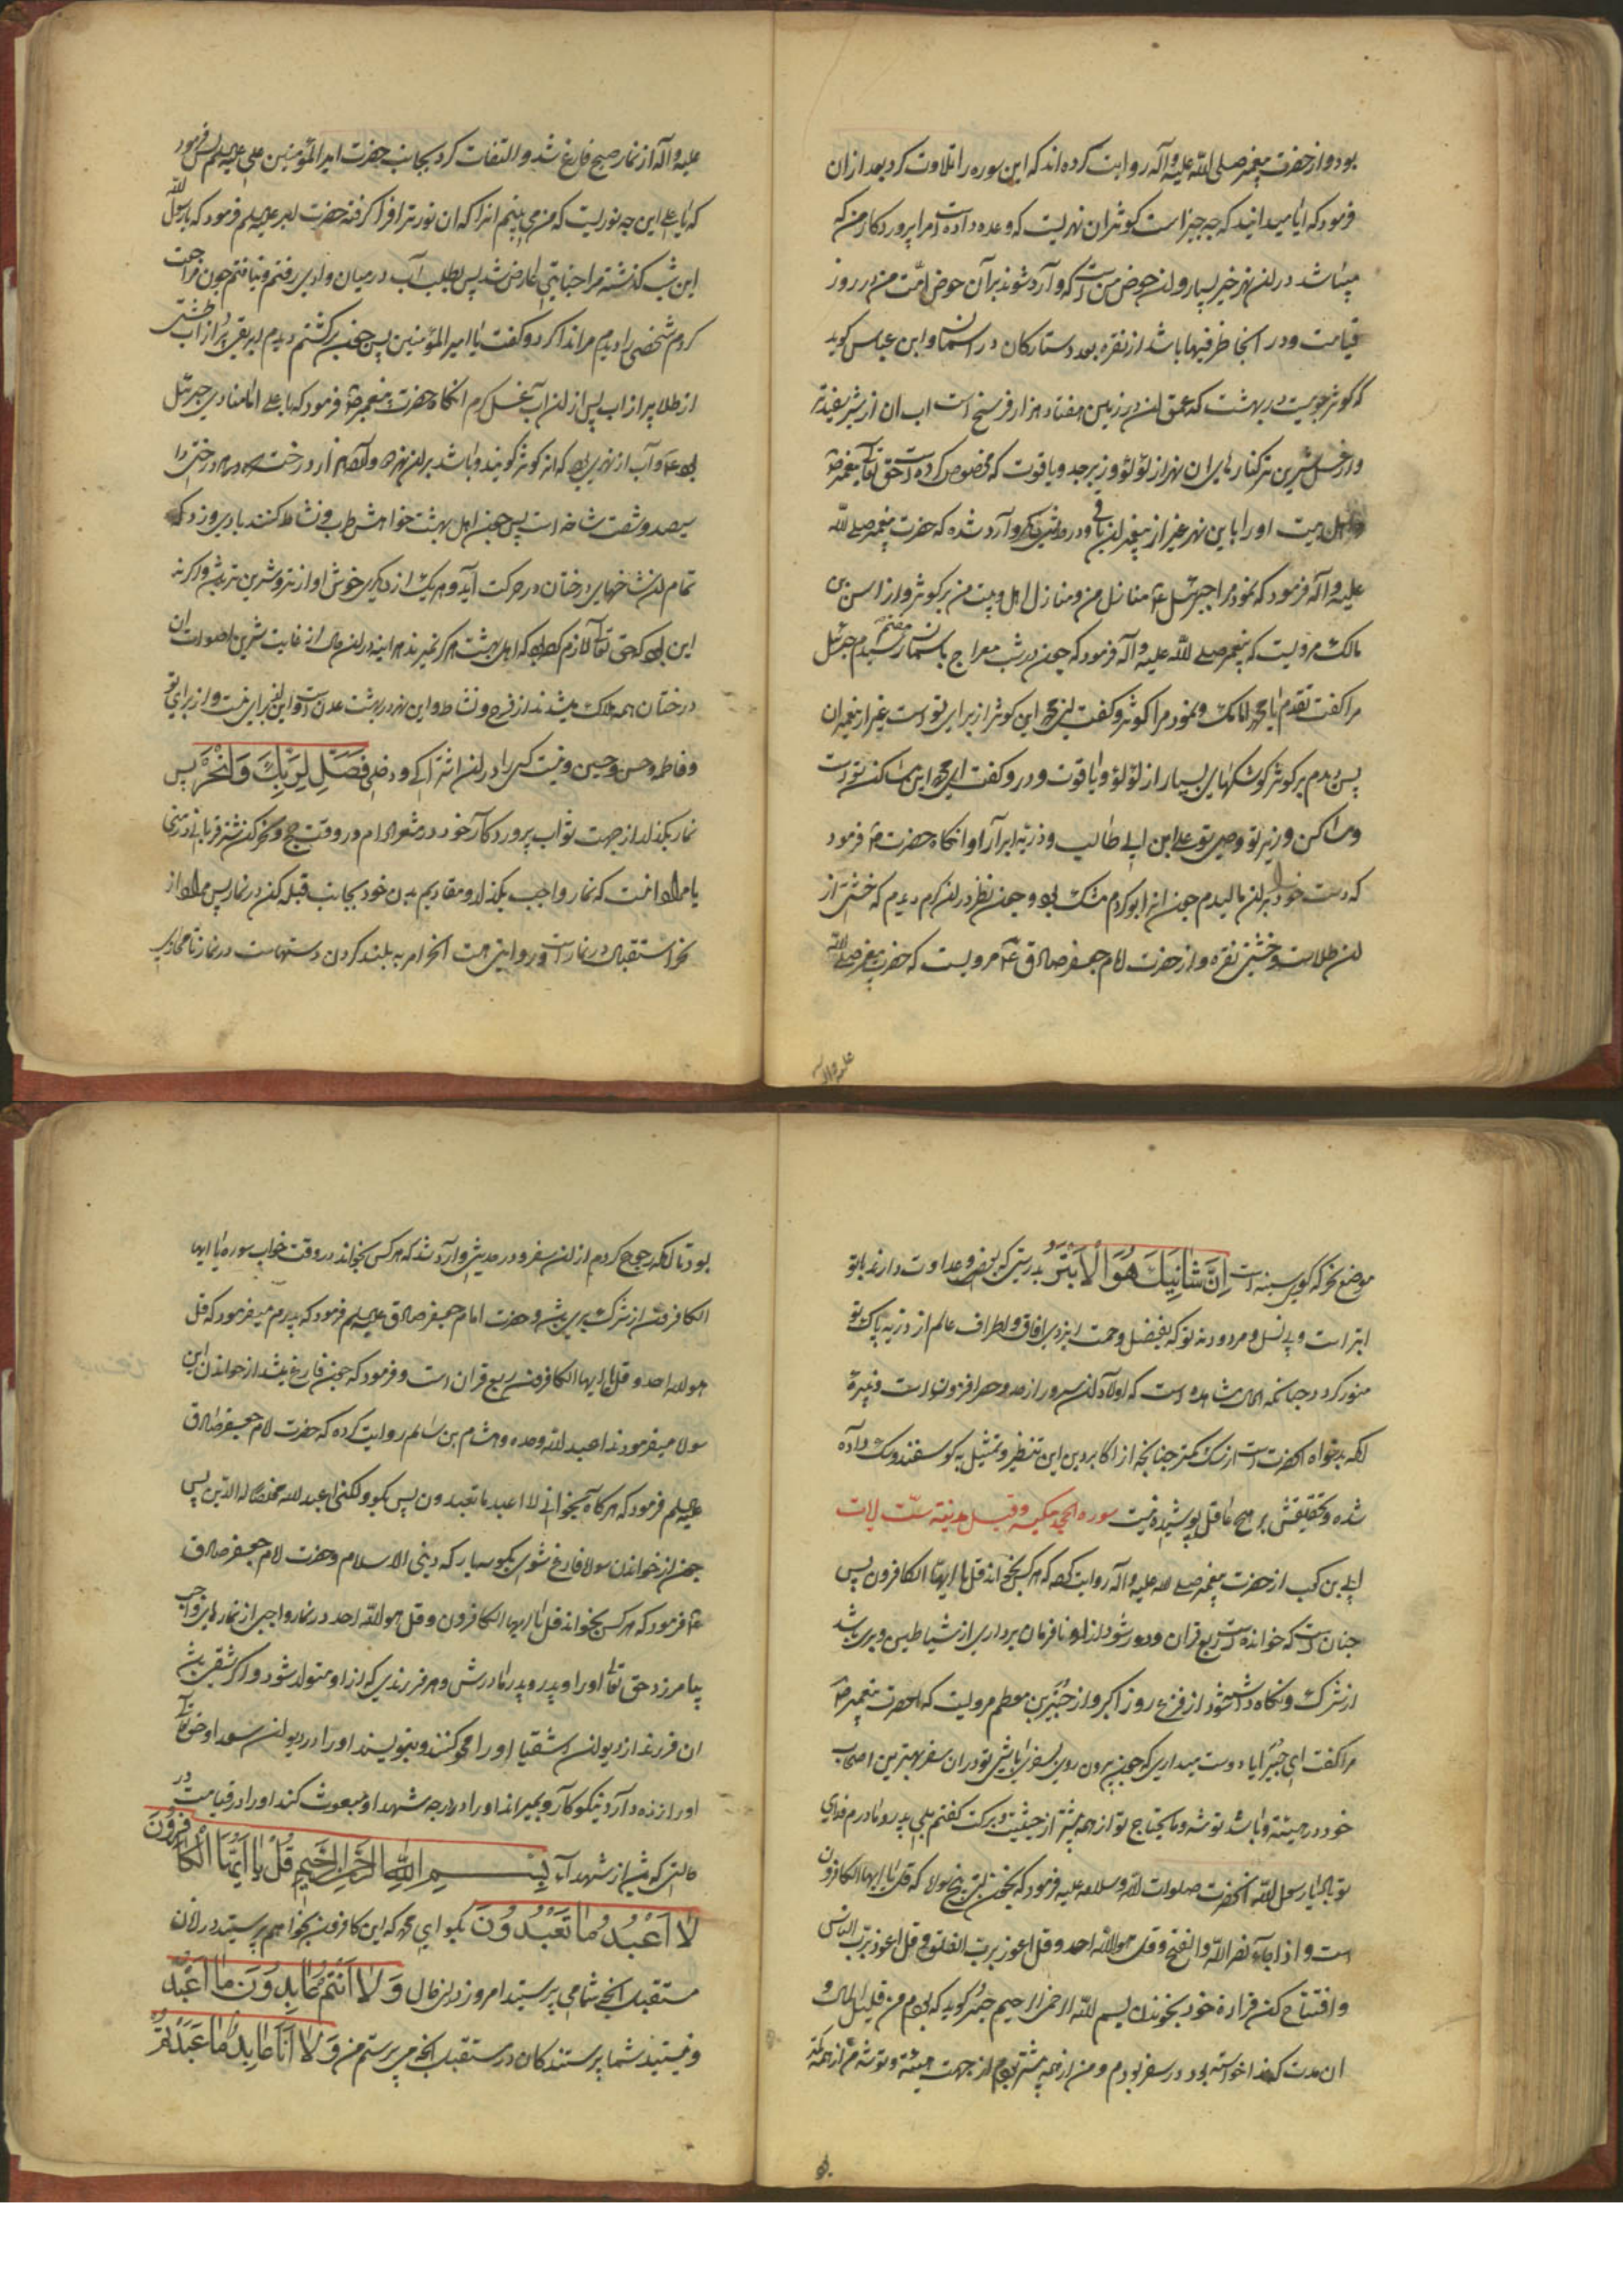 بود و از حضرت پیغمبر صلی الله علیه و آله روایت کرده اند که این سوره را تلاوت کرد بعد از ان
فرمود که ایا میدانید که چه چیز است کوثر ان نهریست که وعده داده است مرا پرورد کار من که
میباشد در ان نهر خیر بسیار و ان حوض من است که وارد شوند بر آن حوض امّت من در روز
قیامت و در انجا ظرفیها باشد از نقره بعدد ستارکان در اسمان و ابن عباس کوید
که کوثر جوییست در بهشت که عمق ان در زمین هفتاد هزار فرسخ است اب ان از شیر سفیدتر
و از عسل شیرین تر کنارهای ان نهر از لؤلؤ و زبرجد و یاقوت که مخصوص کرده است حق تعالی پیغمبر
و اهل بیت او را باین نهر غیر از پیغمبران و در حدیثی دیکر وارد شده که حضرت پیغمبر صلی الله
علیه و اله فرمود که نمود مرا جبرئیل ع منازل من و منازل اهل بیت من بر کوثر و از انس بن
مالک مرویست که پیغمبر صلی الله علیه و آله فرمود که چون در شب معراج باسمان هفتم رسیدم جبرئیل
مرا کفت تقدم یا محمد امامک و نمود مرا کوثر و کفت ای محمد این کوثر از برای تو است غیر از پیغمبران
پس دیدم بر کوثر کوشکهای بسیار از لؤلؤ و یاقوت و در و کفت ای محمد این مساکن تو است
و مساکن وزیر تو و وصی تو علی ابن ابی طالب و ذریه ابرار او انکاه حضرت ص فرمود
که دست خود بر ان مالیدم چون انرا بو کردم مشک بود و چون نظر در ان کردم دیدم که خشتی از
ان طلاست و خشتی نقره و از حضرت امام جعفر صادق ع مرویست که حضرت پیغمبر صلی الله
علیه و اله
علیه و آله از نماز صبح فارغ شد و التفات کرد بجانب حضرت امیر المؤمنین علی علیه السلم پس فرمود
که یا علی این چه نوریست که من می بینم انرا که ان نور ترا فرا کرفته حضرت امیر علیه السلم فرمود که یا رسول الله
این شب کذشته مرا جنابتی عارض شد پس بطلب آب در میان وادی رفتم و نیافتم چون مراجعت
کردم شخصی را دیدم مرا ندا کرد و کفت یا امیر المؤمنین پس چون برکشتم دیدم ابریقی پر از اب و طشتی
از طلا پر از اب پس از ان آب غسل کردم انکاه حضرت پیغمبر ص فرمود که یا علی اما منادی جبرئیل
بود ع و آب از نهری بود که انرا کوثر کویند و باشد بران نهر دوازده هزار درخت و هر درختی را
سیصد و شصت شاخه است پس چون اهل بهشت خواهش طرب و نشاط کنند بادی وزد که
تمام ان شاخهای درختان در حرکت آید و هر یک از دیکری خوش اواز تر و شیرین تر باشد و اکر نه
این بود که حق تعالی لازم کرده بود که اهل بهشت هرکز نمیرند هر اینه در ان حال از غایت شیرین اصوات ان
درختان همه هلاک میشدند از فرح و نشاط و این نهر در بهشت عدن است و این از برای من است و از برای تو
و فاطمه و حسن و حسین و نیست کسی را در ان اشتراکی و دخلی فَصَلِّ لِرَبِّكَ وَانْحَرْ پس
نماز بکذار از جهت ثواب پرورد کار خود در مشعر الحرام در وقت حج و نحر کن شتر قربانی در منی
یا مراد انست که نماز واجب بکذار و مقادیم بدن خود بجانب قبله کن در نماز پس مراد از
نحر استقبال در نماز است و روایتی هست انحر امر به بلند کردن دستهاست در نماز تا محاذی
موضع نحر که کوی سینه است اِنَّ شَانِئَكَ هُوَ الْاَبْتَرُ بدرستی که بغض و عداوت دارند با تو
ابتر است و بی نسل و مردود نه تو که بفضل و رحمت ایزدی افاق و اطراف عالم از ذریه پاک تو
منور کردد چنانچه الحال مشاهده است که اولاد ان سرور از حد و حصر افزون است و غیره
انکه بدخواه انحضرت است از سک کمتر چنانچه از اکابر دین این تنظیر و تمثیل به کوسفند و سک داده
شده و تحقیقش بر هیچ عاقل پوشیده نیست سوره الجحد مکیه و قیل مدنیة ستّ ایات
ابی بن کعب از حضرت پیغمبر صلی الله علیه و اله روایت کرده که هر کس بخواند قل یا ایها الکافرون پس
چنان است که خوانده است ربع قران و دور شود از او نافرمان برداری از شیاطین و بری باشد
از شرک و نکاه داشته شود از فزع روز اکبر و از جُبَیر بن مطعم مرویست که حضرت پیغمبر ص
مرا کفت ای جُبَیر ایا دوست میداری که چون بیرون روی بسفری باشی تو در ان سفر بهترین اصحاب
خود در هیئت و باشد توشه و ما یحتاج تو از همه بیشتر از حیثیت و برکت کفتم بلی پدر و مادرم فدای
تو باد یا رسول الله انحضرت صلوات الله و سلامه علیه فرمود که بخوان این پنج سوره که قل یا ایها الکافرون
است و اذا جاء نصر الله و الفتح و قل هو الله احد و قل اعوذ برب الفلق و قل اعوذ برب الناس
و افتتاح کن قراءة خود بخواندن بسم الله الرحمن الرحیم جبیر کوید که بودم من قلیل المال و
ان مدت که خدا خواسته بود در سفر بودم و من از همه بیشتر بودم از جهت هیئت و توشه من از همه
بود تا انکه رجوع کردم از ان سفر و در حدیثی وارد شد که هر کس بخواند در وقت خواب سوره یا ایها
الکافرون از شرک بری باشد و حضرت امام جعفر صادق علیه السلم فرمود که پدرم میفرمود که قل
هو الله احد و قل یا ایها الکافرون ربع قران است و فرمود که چون فارغ میشد از خواندن این
سوره میفرمودند اعبد الله وحده و هشام بن سالم روایت کرده که حضرت امام جعفر صادق
علیه السلم فرمود که هر کاه بخوانی لا اعبد ما تعبدون پس بکو و لکنی اعبد الله مخلصا له الدین پس
چون از خواندن سوره فارغ شوی بکو سه بار که دینی الاسلام و حضرت امام جعفر صادق
ع فرمود که هر کس بخواند قل یا ایها الکافرون و قل هو الله احد در نماز واجبی از نمازهای واجب
بیامرزد حق تعالی او را و پدر و مادرش و هر فرزندی که از او متولد شود و اکر شقی باشد
ان فرزند از دیوان اشقیا او را محو کنند و بنویسند او را در دیوان سعدا و حق تعالی
او را زنده دارد نیکو کار و بمیراند او را در درجه شهدا و مبعوث کند او را در قیامت در
حالتی که باشد از شهداء بِسْمِ اللهِ الرَّحْمنِ الرَّحِيمِ قُلْ يَا اَيُّهَا الْكَافِرُونَ
لَا اَعْبُدُ مَا تَعْبُدُونَ بکو ای محمد که این کافرون نخواهم پرستید در زمان
مستقبل انچه شما می پرستید امروز در این حال وَلَا اَنْتُمْ عَابِدُونَ مَا اَعْبُدُ
و نیستید شما پرستندکان در مستقبل انچه می پرستم من وَلَا اَنَا عَابِدٌ مَا عَبَدْتُمْ